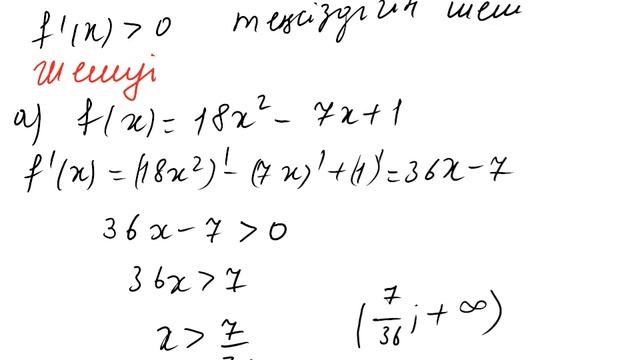 f'(x) > 0 теңсіздігін шеш
Шешуі
а) f(x) = 18x² - 7x + 1
f'(x) = (18x²)' - (7x)' + (1)' = 36x - 7
36x - 7 > 0
36x > 7
x > 7/36 (7/36; +∞)